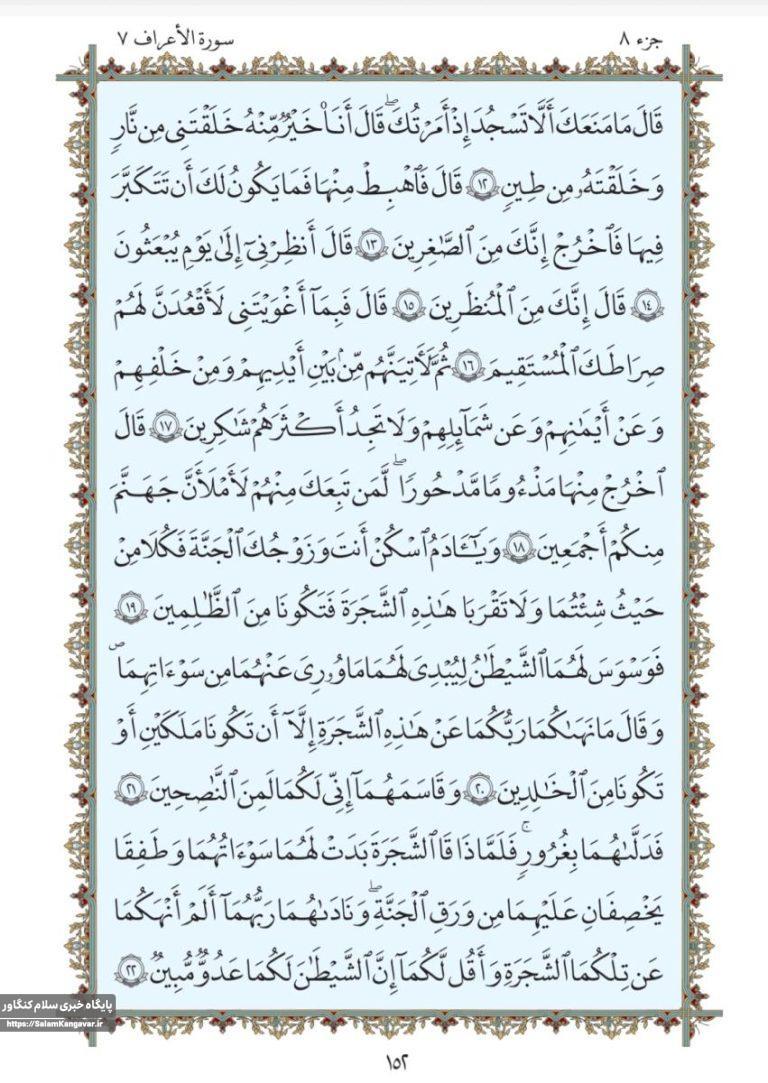 جزء ٨
سورة الأعراف ٧
قَالَ مَا مَنَعَكَ أَلَّا تَسْجُدَ إِذْ أَمَرْتُكَ ۖ قَالَ أَنَا۠ خَيْرٌ مِّنْهُ خَلَقْتَنِى مِن نَّارٍ
وَخَلَقْتَهُۥ مِن طِينٍ ١٢ قَالَ فَٱهْبِطْ مِنْهَا فَمَا يَكُونُ لَكَ أَن تَتَكَبَّرَ
فِيهَا فَٱخْرُجْ إِنَّكَ مِنَ ٱلصَّٰغِرِينَ ١٣ قَالَ أَنظِرْنِىٓ إِلَىٰ يَوْمِ يُبْعَثُونَ
١٤ قَالَ إِنَّكَ مِنَ ٱلْمُنظَرِينَ ١٥ قَالَ فَبِمَآ أَغْوَيْتَنِى لَأَقْعُدَنَّ لَهُمْ
صِرَٰطَكَ ٱلْمُسْتَقِيمَ ١٦ ثُمَّ لَءَاتِيَنَّهُم مِّنۢ بَيْنِ أَيْدِيهِمْ وَمِنْ خَلْفِهِمْ
وَعَنْ أَيْمَٰنِهِمْ وَعَن شَمَآئِلِهِمْ وَلَا تَجِدُ أَكْثَرَهُمْ شَٰكِرِينَ ١٧ قَالَ
ٱخْرُجْ مِنْهَا مَذْءُومًا مَّدْحُورًا ۖ لَّمَن تَبِعَكَ مِنْهُمْ لَأَمْلَأَنَّ جَهَنَّمَ
مِنكُمْ أَجْمَعِينَ ١٨ وَيَٰٓـَٔادَمُ ٱسْكُنْ أَنتَ وَزَوْجُكَ ٱلْجَنَّةَ فَكُلَا مِنْ
حَيْثُ شِئْتُمَا وَلَا تَقْرَبَا هَٰذِهِ ٱلشَّجَرَةَ فَتَكُونَا مِنَ ٱلظَّٰلِمِينَ ١٩
فَوَسْوَسَ لَهُمَا ٱلشَّيْطَٰنُ لِيُبْدِىَ لَهُمَا مَا وُۥرِىَ عَنْهُمَا مِن سَوْءَٰتِهِمَا
وَقَالَ مَا نَهَىٰكُمَا رَبُّكُمَا عَنْ هَٰذِهِ ٱلشَّجَرَةِ إِلَّآ أَن تَكُونَا مَلَكَيْنِ أَوْ
تَكُونَا مِنَ ٱلْخَٰلِدِينَ ٢٠ وَقَاسَمَهُمَآ إِنِّى لَكُمَا لَمِنَ ٱلنَّٰصِحِينَ ٢١
فَدَلَّىٰهُمَا بِغُرُورٍ ۚ فَلَمَّا ذَاقَا ٱلشَّجَرَةَ بَدَتْ لَهُمَا سَوْءَٰتُهُمَا وَطَفِقَا
يَخْصِفَانِ عَلَيْهِمَا مِن وَرَقِ ٱلْجَنَّةِ ۖ وَنَادَىٰهُمَا رَبُّهُمَآ أَلَمْ أَنْهَكُمَا
عَن تِلْكُمَا ٱلشَّجَرَةِ وَأَقُل لَّكُمَآ إِنَّ ٱلشَّيْطَٰنَ لَكُمَا عَدُوٌّ مُّبِينٌ ٢٢
پایگاه خبری سلام کنگاور
https://SalamKangavar.ir
١٥٢